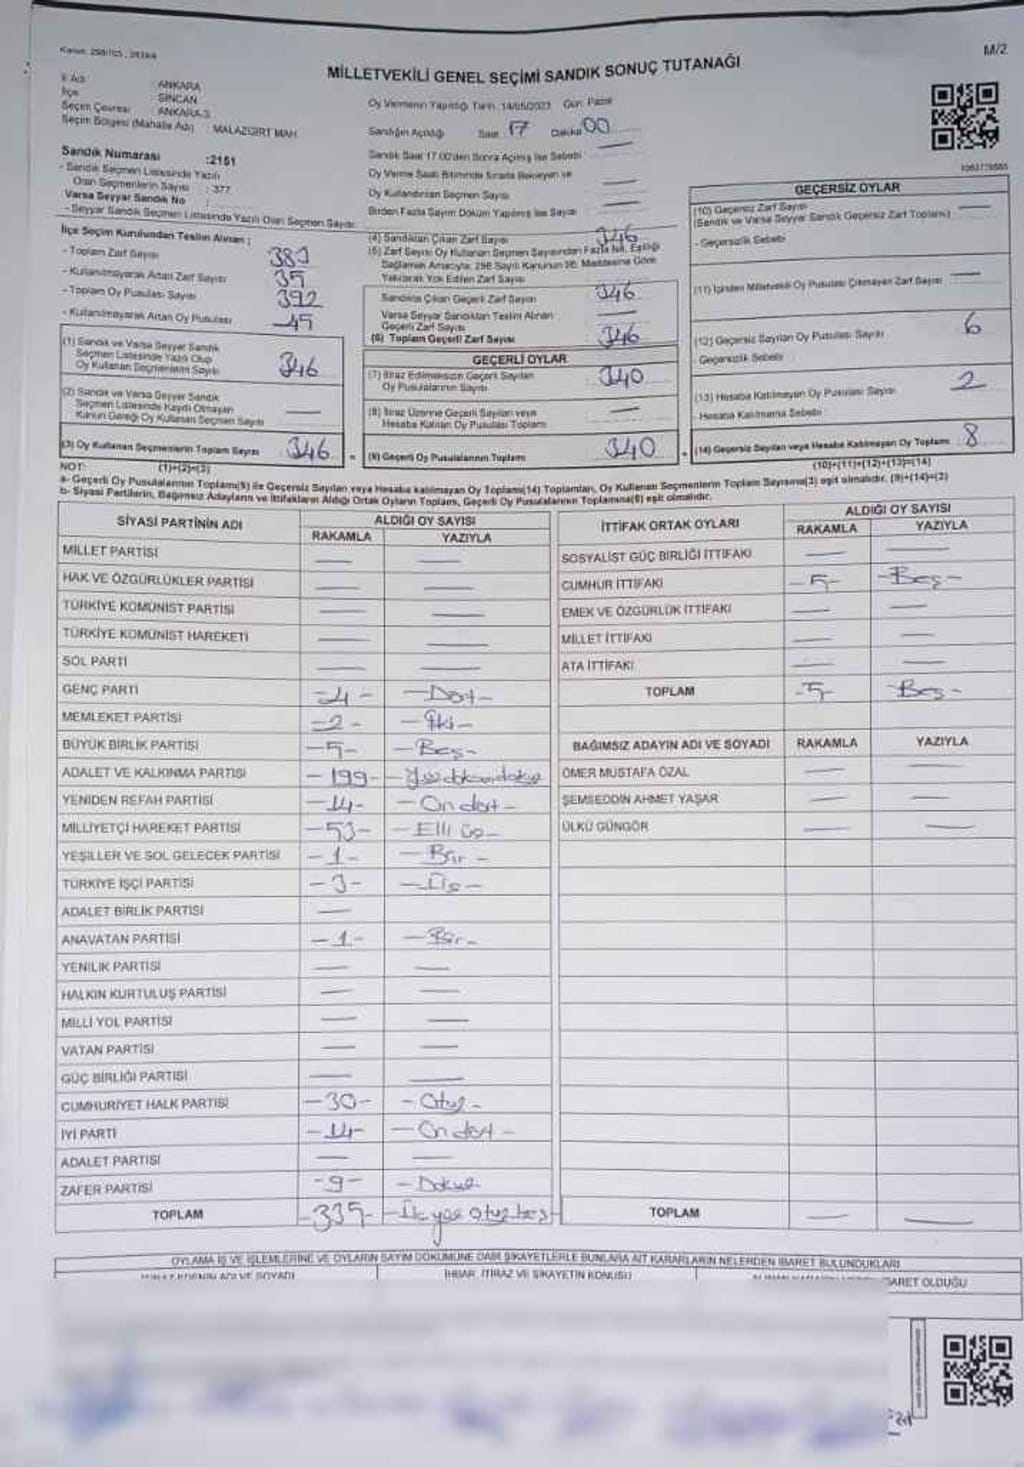 Kanun: 298/105 ; 2839/4
M/2
MİLLETVEKİLİ GENEL SEÇİMİ SANDIK SONUÇ TUTANAĞI
İl Adı : ANKARA
İlçe : SİNCAN
Seçim Çevresi : ANKARA-3
Seçim Bölgesi (Mahalle Adı) : MALAZGİRT MAH.
Sandık Numarası :2151
- Sandık Seçmen Listesinde Yazılı
Olan Seçmenlerin Sayısı : 377
Varsa Seyyar Sandık No :
- Seyyar Sandık Seçmen Listesinde Yazılı Olan Seçmen Sayısı:
Oy Vermenin Yapıldığı Tarih :14/05/2023 Gün: Pazar
Sandığın Açıldığı Saat: 17 Dakika: 00
Sandık Saat 17.00'den Sonra Açılmış İse Sebebi : —
Oy Verme Saati Bitiminde Sırada Bekleyen ve
Oy Kullandırılan Seçmen Sayısı —
Birden Fazla Sayım Döküm Yapılmış İse Sayısı —
1063779565
İlçe Seçim Kurulundan Teslim Alınan ;
- Toplam Zarf Sayısı
- Kullanılmayarak Artan Zarf Sayısı 35
- Toplam Oy Pusulası Sayısı 392
- Kullanılmayarak Artan Oy Pusulası 45
(1) Sandık ve Varsa Seyyar Sandık
Seçmen Listesinde Yazılı Olup
Oy Kullanan Seçmenlerin Sayısı 346
(2) Sandık ve Varsa Seyyar Sandık
Seçmen Listesinde Kayıtlı Olmayan
Kanun Gereği Oy Kullanan Seçmen Sayısı —
(3) Oy Kullanan Seçmenlerin Toplam Sayısı 346
(1)+(2)=(3)
(4) Sandıktan Çıkan Zarf Sayısı 346
(5) Zarf Sayısı Oy Kullanan Seçmen Sayısından Fazla İse, Eşitliği
Sağlamak Amacıyla, 298 Sayılı Kanunun 98. Maddesine Göre
Yakılarak Yok Edilen Zarf Sayısı
Sandıkta Çıkan Geçerli Zarf Sayısı 346
Varsa Seyyar Sandıktan Teslim Alınan
Geçerli Zarf Sayısı —
(6) Toplam Geçerli Zarf Sayısı 346
GEÇERLİ OYLAR
(7) İtiraz Edilmeksizin Geçerli Sayılan
Oy Pusulalarının Sayısı 340
(8) İtiraz Üzerine Geçerli Sayılan veya
Hesaba Katılan Oy Pusulası Toplamı —
(9) Geçerli Oy Pusulalarının Toplamı 340
GEÇERSİZ OYLAR
(10) Geçersiz Zarf Sayısı
(Sandık ve Varsa Seyyar Sandık Geçersiz Zarf Toplamı) —
- Geçersizlik Sebebi :
(11) İçinden Milletvekili Oy Pusulası Çıkmayan Zarf Sayısı —
(12) Geçersiz Sayılan Oy Pusulası Sayısı 6
- Geçersizlik Sebebi :
(13) Hesaba Katılmayan Oy Pusulası Sayısı 2
- Hesaba Katılmama Sebebi :
(14) Geçersiz Sayılan veya Hesaba Katılmayan Oy Toplamı 8
(10)+(11)+(12)+(13)=(14)
NOT:
a- Geçerli Oy Pusulalarının Toplamı(9) ile Geçersiz Sayılan veya Hesaba katılmayan Oy Toplamı(14) Toplamları, Oy Kullanan Seçmenlerin Toplam Sayısına(3) eşit olmalıdır. (9)+(14)=(3)
b- Siyasi Partilerin, Bağımsız Adayların ve İttifakların Aldığı Ortak Oyların Toplamı, Geçerli Oy Pusulalarının Toplamına(9) eşit olmalıdır.
SİYASİ PARTİNİN ADI ALDIĞI OY SAYISI
RAKAMLA YAZIYLA
MİLLET PARTİSİ — —
HAK VE ÖZGÜRLÜKLER PARTİSİ — —
TÜRKİYE KOMÜNİST PARTİSİ — —
TÜRKİYE KOMÜNİST HAREKETİ — —
SOL PARTİ — —
GENÇ PARTİ -4- -Dört-
MEMLEKET PARTİSİ -2- -İki-
BÜYÜK BİRLİK PARTİSİ -5- -Beş-
ADALET VE KALKINMA PARTİSİ -199- -Yüzdoksandokuz
YENİDEN REFAH PARTİSİ -14- -On dört-
MİLLİYETÇİ HAREKET PARTİSİ -53- -Elli üç-
YEŞİLLER VE SOL GELECEK PARTİSİ -1- -Bir-
TÜRKİYE İŞÇİ PARTİSİ -3- -Üç-
ADALET BİRLİK PARTİSİ —
ANAVATAN PARTİSİ -1- -Bir-
YENİLİK PARTİSİ — —
HALKIN KURTULUŞ PARTİSİ — —
MİLLİ YOL PARTİSİ — —
VATAN PARTİSİ — —
GÜÇ BİRLİĞİ PARTİSİ — —
CUMHURİYET HALK PARTİSİ -30- -Otuz-
İYİ PARTİ -14- -On dört-
ADALET PARTİSİ — —
ZAFER PARTİSİ -9- -Dokuz
TOPLAM -335- otuz beş
İTTİFAK ORTAK OYLARI ALDIĞI OY SAYISI
RAKAMLA YAZIYLA
SOSYALİST GÜÇ BİRLİĞİ İTTİFAKI — —
CUMHUR İTTİFAKI -5- -Beş-
EMEK VE ÖZGÜRLÜK İTTİFAKI — —
MİLLET İTTİFAKI — —
ATA İTTİFAKI — —
TOPLAM -5- -Beş-
BAĞIMSIZ ADAYIN ADI VE SOYADI RAKAMLA YAZIYLA
ÖMER MUSTAFA ÖZAL — —
ŞEMSEDDİN AHMET YAŞAR — —
ÜLKÜ GÜNGÖR — —
TOPLAM — —
OYLAMA İŞ VE İŞLEMLERİNE VE OYLARIN SAYIM DÖKÜMÜNE DAİR ŞİKAYETLERLE BUNLARA AİT KARARLARIN NELERDEN İBARET BULUNDUKLARI
İHBAR, İTİRAZ VE ŞİKAYETİN KONUSU